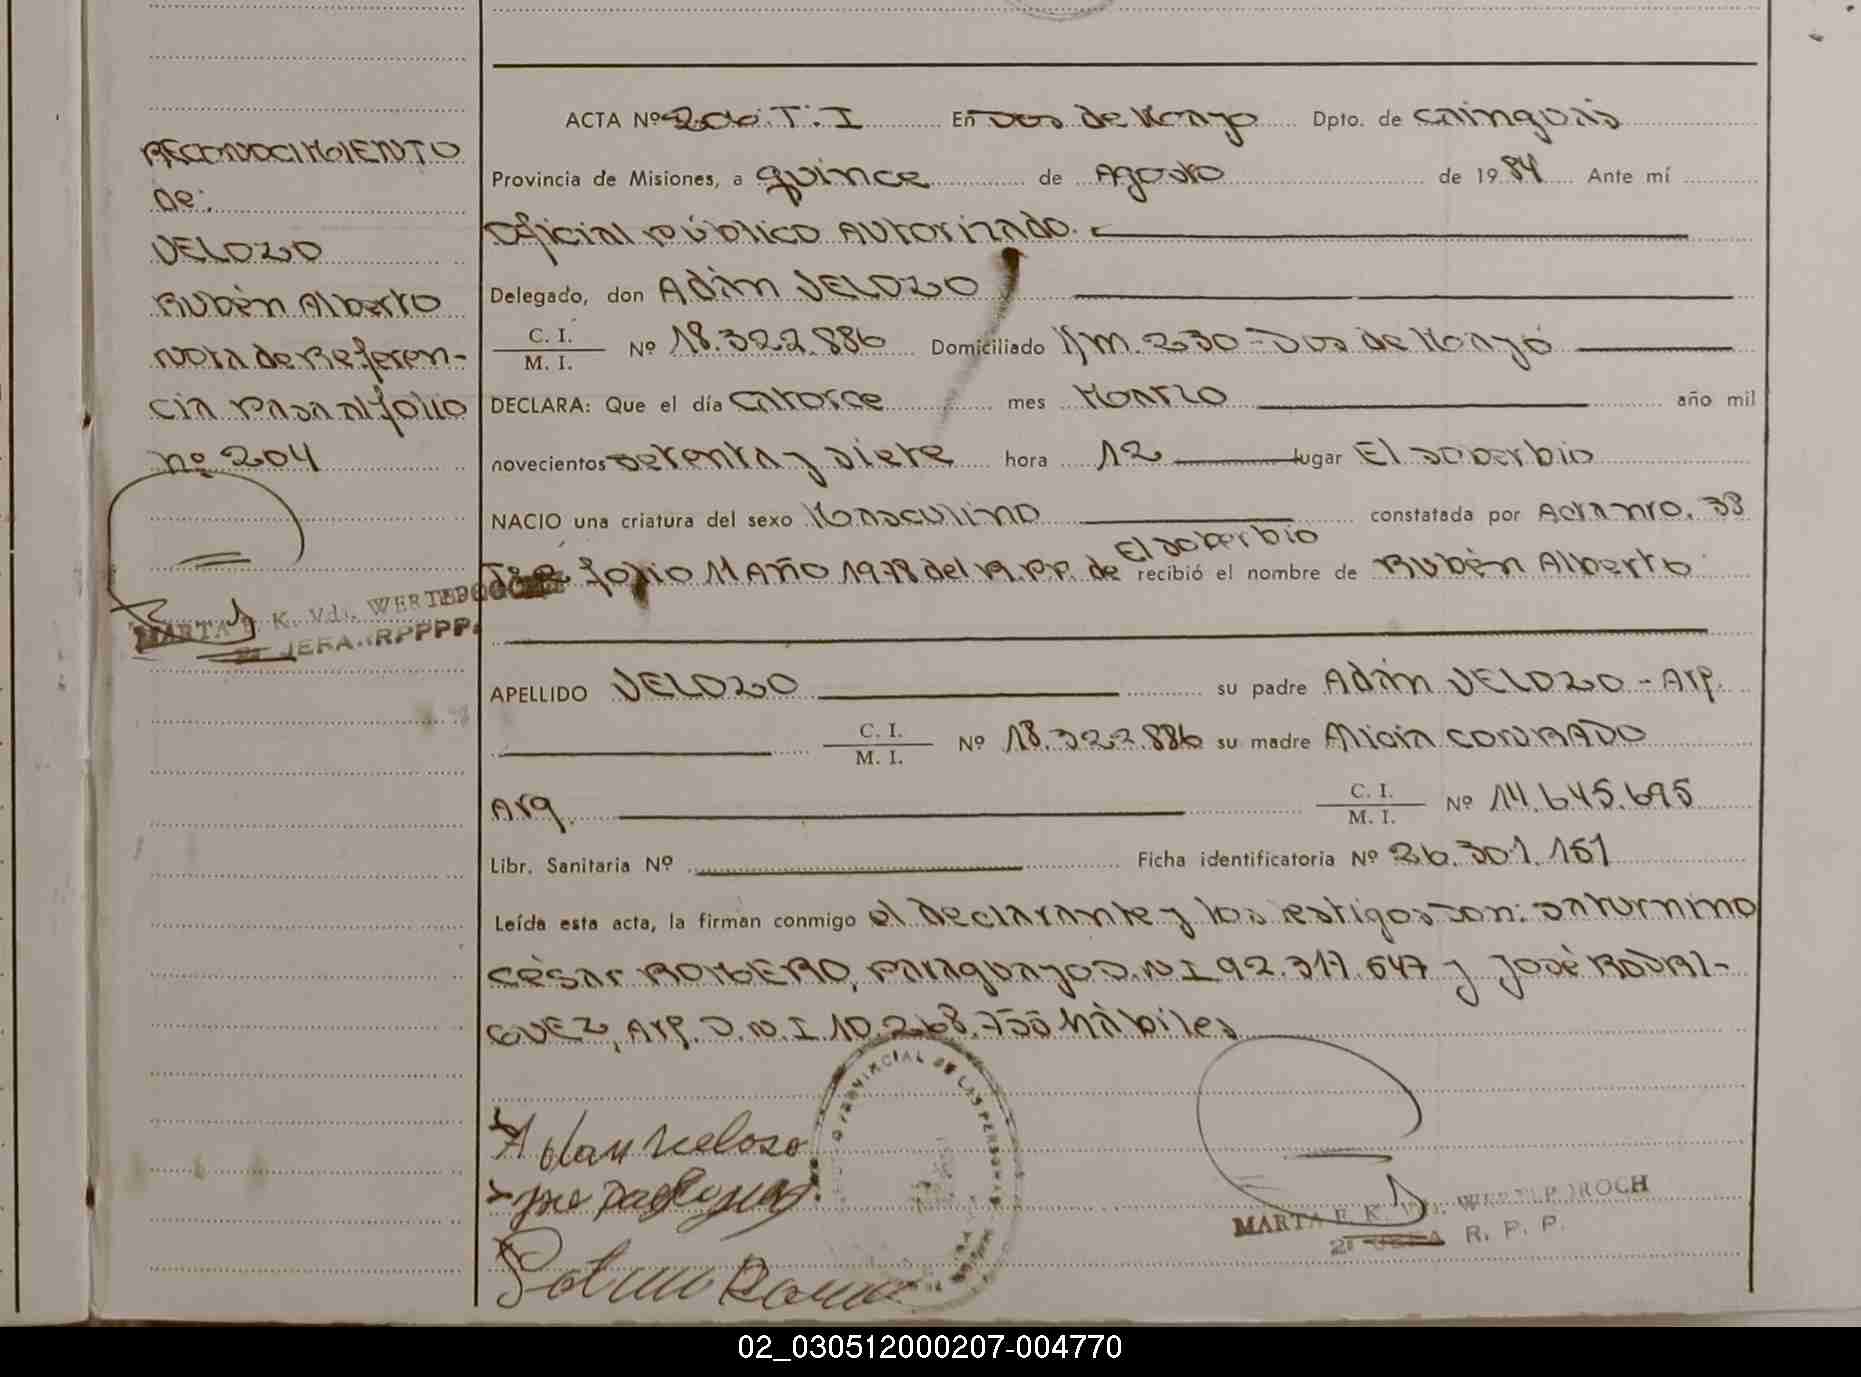 RECONOCIMIENTO
de:
VELOZO
Rubén Alberto
Nota de Referen-
cia pasa al folio
nº 204
MARTA E. K. Vda. WERTEPOROCH
JEFA R.P.P.
ACTA Nº 200.T.I En Dos de Mayo Dpto. de Cainguás
Provincia de Misiones, a quince de Agosto de 1984 Ante mí
Oficial público Autorizado.
Delegado, don Adán VELOZO
C. I.
M. I. Nº 18.322.886 Domiciliado Km. 230 - Dos de Mayo
DECLARA: Que el día catorce mes Marzo año mil
novecientos setenta y siete hora 12 lugar El soberbio
NACIO una criatura del sexo Masculino constatada por Acta nro. 33
El soberbio
folio 11 Año 1978 del R.P.P. de recibió el nombre de Rubén Alberto
APELLIDO VELOZO su padre Adán VELOZO - Arg.
C. I.
M. I. Nº 18.322.886 su madre Alicia CONRADO
Arg. C. I.
M. I. Nº 14.645.695
Libr. Sanitaria Nº Ficha identificatoria Nº 26.301.151
Leída esta acta, la firman conmigo el declarante y los testigos son: Saturnino
César ROMERO, Paraguayo D.N.I 92.317.547 y José RODRI-
GUEZ, Arg. D.N.I 10.268.755 hábiles
PROVINCIAL DE LAS PERSONAS
Adan Veloso
MARTA E. K. Vda. WERTEPOROCH
JEFA R. P. P.
02_030512000207-004770